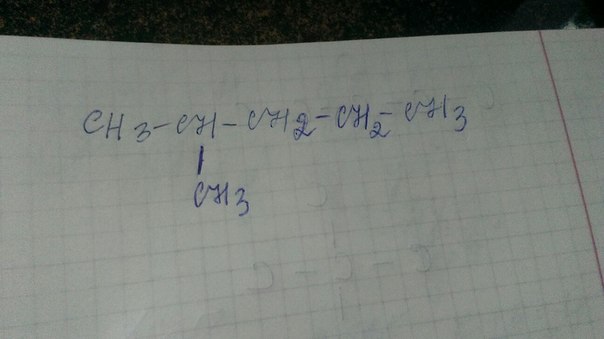 CH3-CH-CH2-CH2-CH3
|
CH3